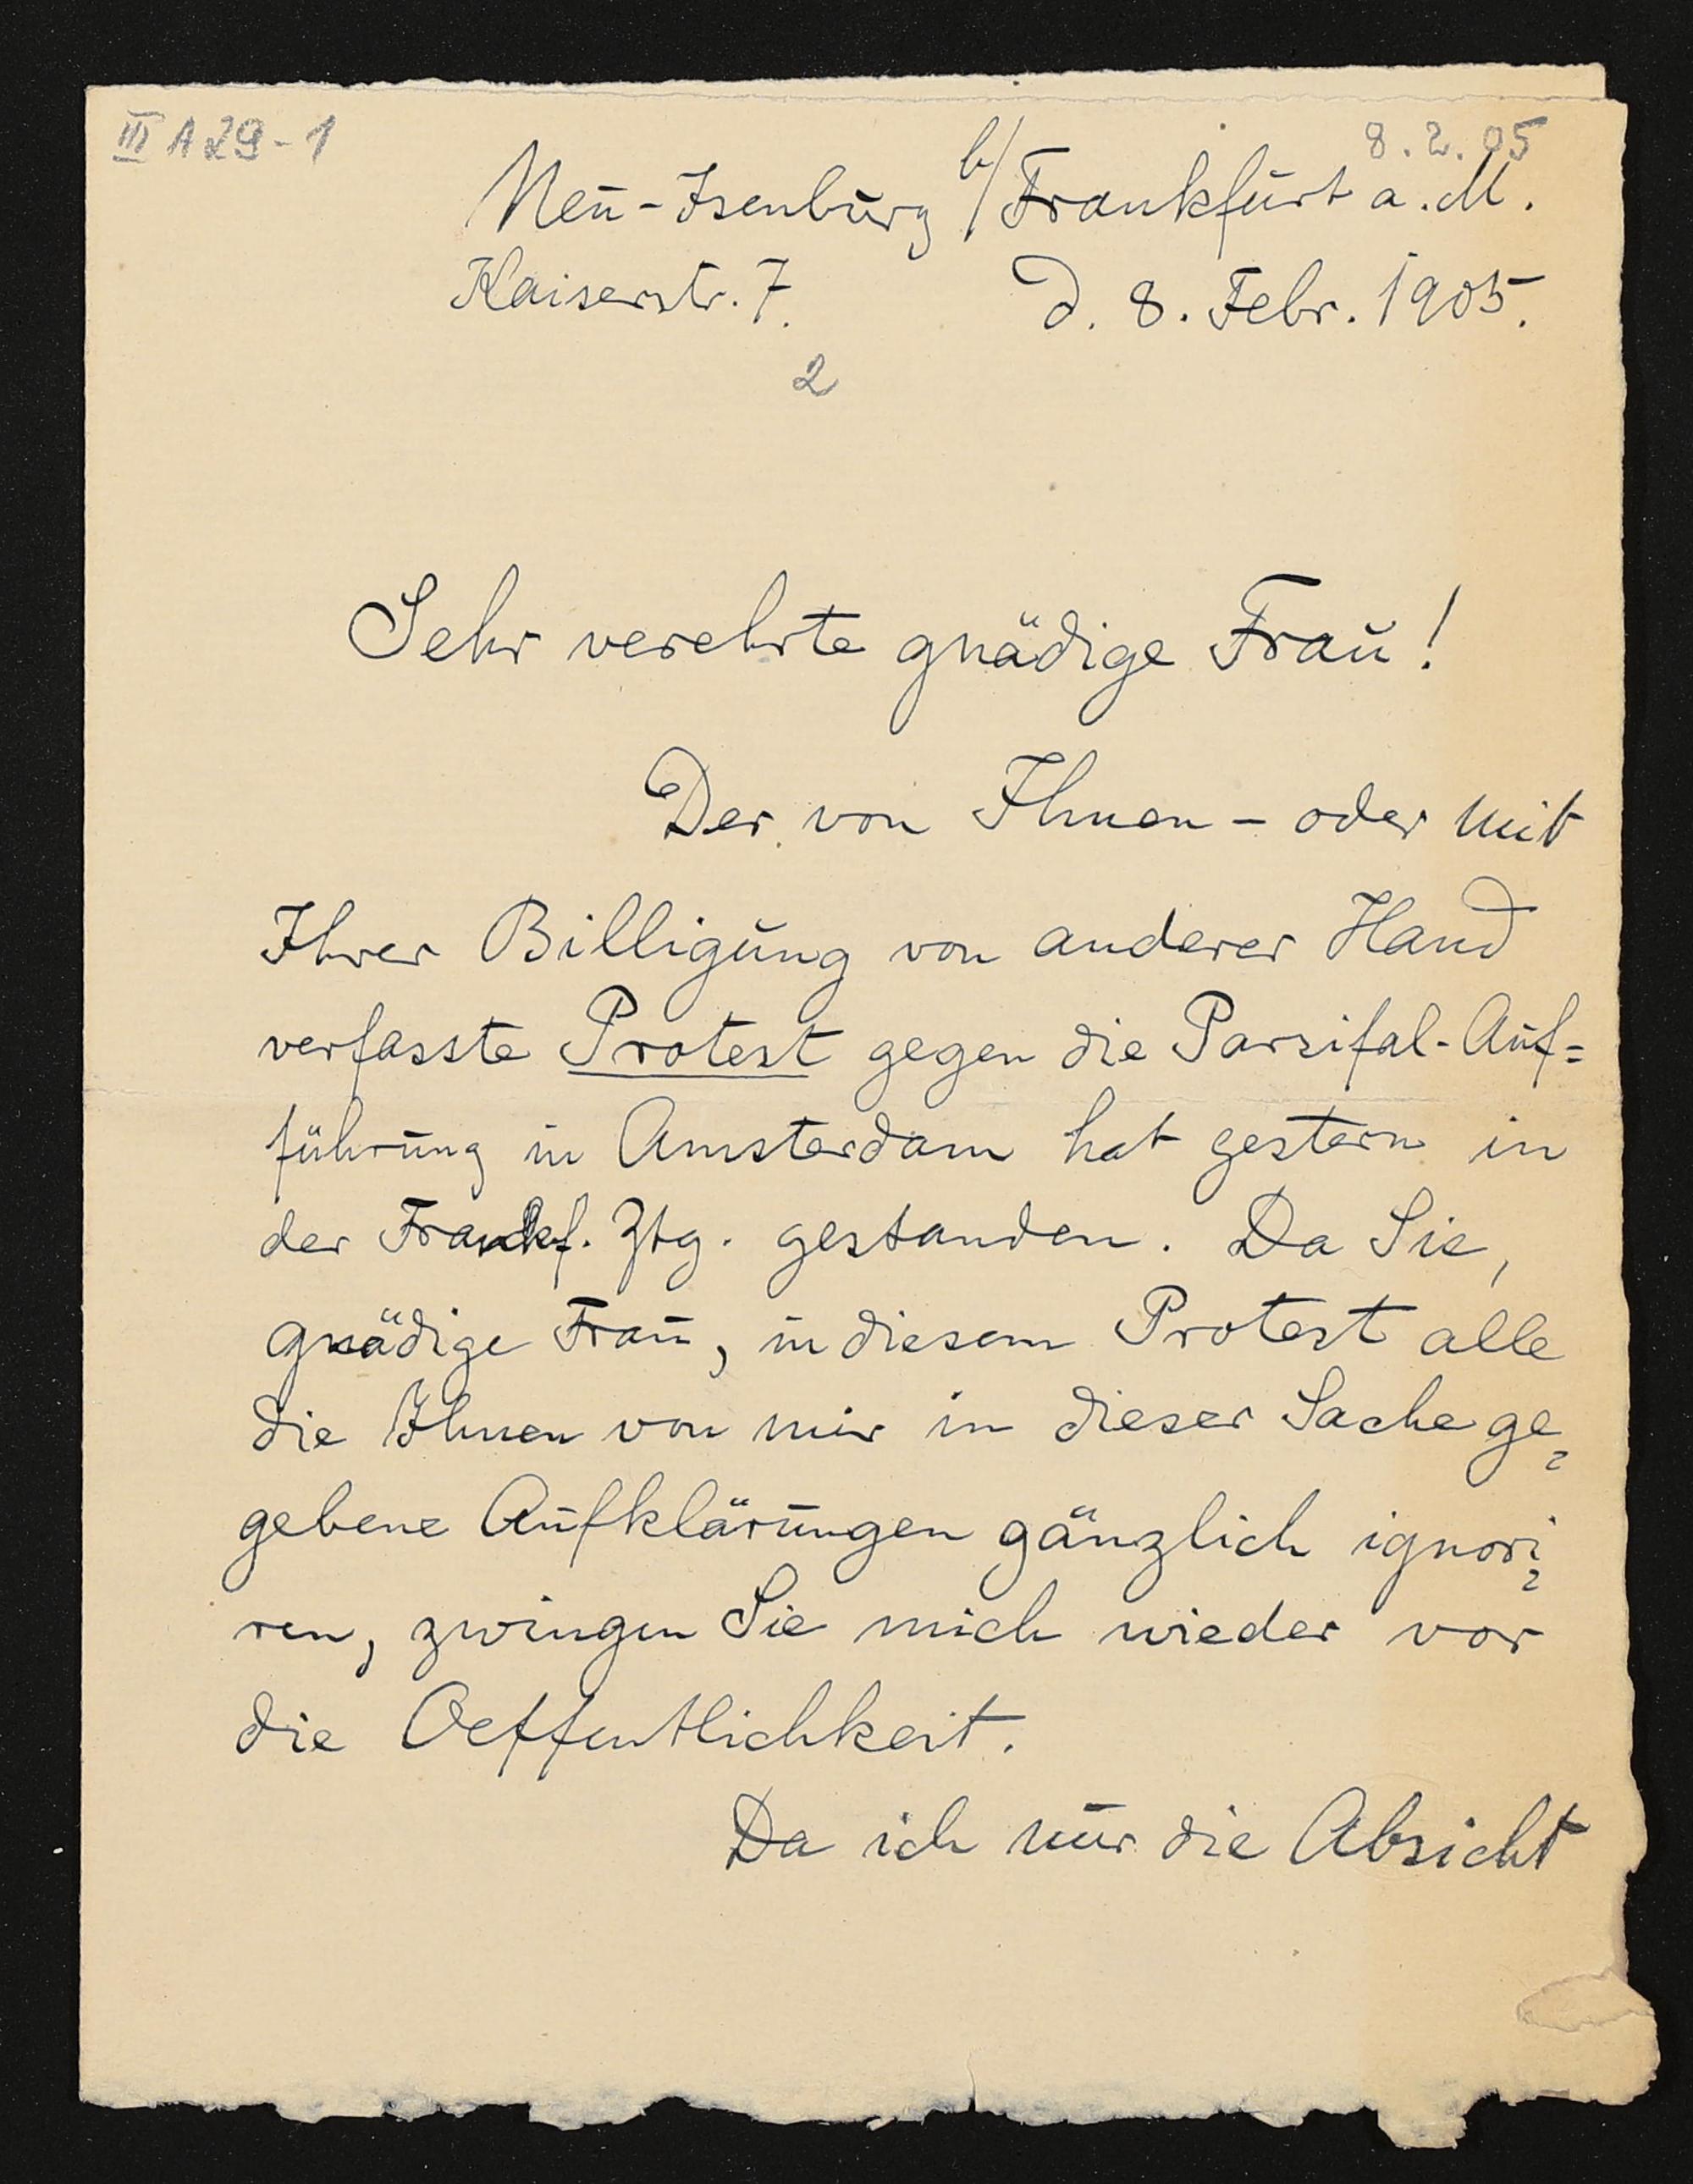 III A 29-1
8.2.05
Neu-Isenburg b/ Frankfurt a. M.
Kaiserstr. 7.
d. 8. Febr. 1905.
2
Sehr verehrte gnädige Frau!
Der von Ihnen - oder mit
Ihrer Billigung von anderer Hand
verfasste Protest gegen die Parsifal-Auf=
führung in Amsterdam hat gestern in
der Frankf. Ztg. gestanden. Da Sie,
gnädige Frau, in diesem Protest alle
die Ihnen von mir in dieser Sache ge=
gebene Aufklärungen gänzlich ignori=
ren, zwingen Sie mich wieder vor
die Oeffentlichkeit.
Da ich nur die Absicht